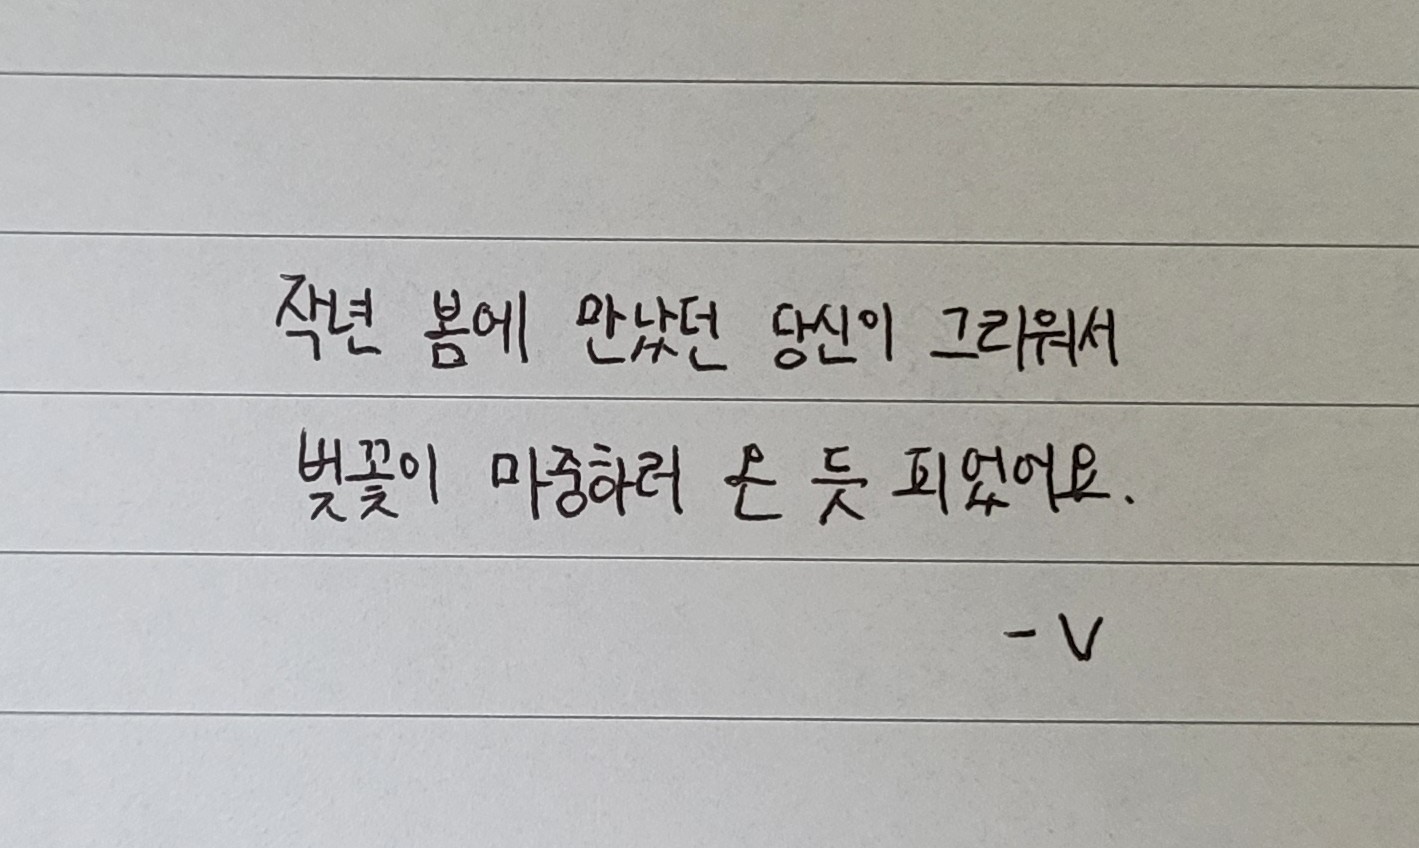 작년 봄에 만났던 당신이 그리워서
벚꽃이 마중하러 온 듯 피었어요.
- V